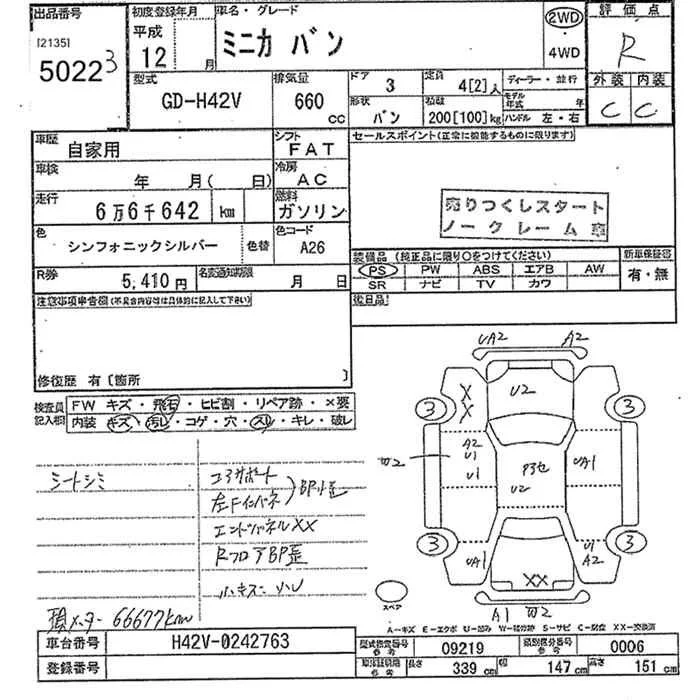 出品番号 初度登録年月 車名・グレード 2WD 評価点
[2135] 平成 ミニカ バン ・ R
5022 3 12 月 4WD
型式 排気量 ドア 3 定員 4[2]人 ディーラー・並行 外装 内装
GD-H42V 660 cc 形状 バン 積載 200[100]kg モデル年式 年 C C
ハンドル 左・右
車歴 自家用 シフト FAT セールスポイント(正常に機能するものに限ります)
車検 年 月( 日) 冷房 AC
走行 6万6千642 km 燃料 ガソリン 売りつくしスタート
ノークレーム
色 シンフォニックシルバー 色替 色コード A26
装備品 (純正品に限り○をつけてください) 新車保証書
R券 5,410円 名変通知期限 月 日 PS PW ABS エアB AW 有・無
SR ナビ TV カワ
注意事項申告欄(不具合内容等は具体的に記入して下さい) 後日品
修復歴 有〔箇所 〕
検査員記入欄 FW キズ・飛石・ヒビ割・リペア跡・×要
内装 キズ・汚レ・コゲ・穴・スレ・キレ・破レ
シートシミ
コアサポート
左Fインパネ BP小歪
エンドパネルXX
Rフロア BP歪
小キズ・凹
積メーター 66677km
UA2 A2
U2
X
X
3 3
A2
U1
U1
W2
P3セ
U2
UA1
3 3
UA1
U1
A2
XX
A1 W2
スペア
A-キズ E-エクボ U-凹み W-補修跡 S-サビ C-腐食 XX-交換済
車台番号 H42V-0242763 型式指定番号 参考 09219 類別区分番号 参考 0006
登録番号 車体証明用 参考 長さ 339 cm 幅 147 cm 高さ 151 cm